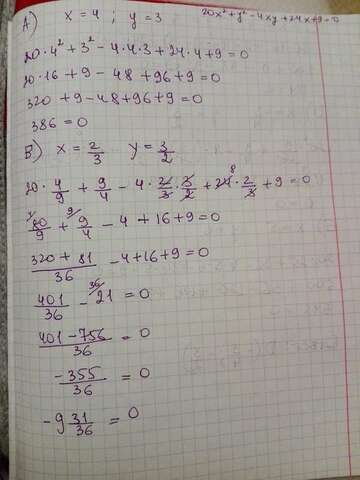 A) x = 4 ; y = 3 20x² + y² - 4xy + 24x + 9 = 0
20 · 4² + 3² - 4 · 4 · 3 + 24 · 4 + 9 = 0
20 · 16 + 9 - 48 + 96 + 9 = 0
320 + 9 - 48 + 96 + 9 = 0
386 = 0
Б) x = 2/3 y = 3/2
20 · 4/9 + 9/4 - 4 · 2/3 · 3/2 + 24 8 · 2/3 + 9 = 0
80/9 + 9/4 - 4 + 16 + 9 = 0
320 + 81/36 - 4 + 16 + 9 = 0
401/36 - 36 21 = 0
401 - 756/36 = 0
- 355/36 = 0
- 9 31/36 = 0